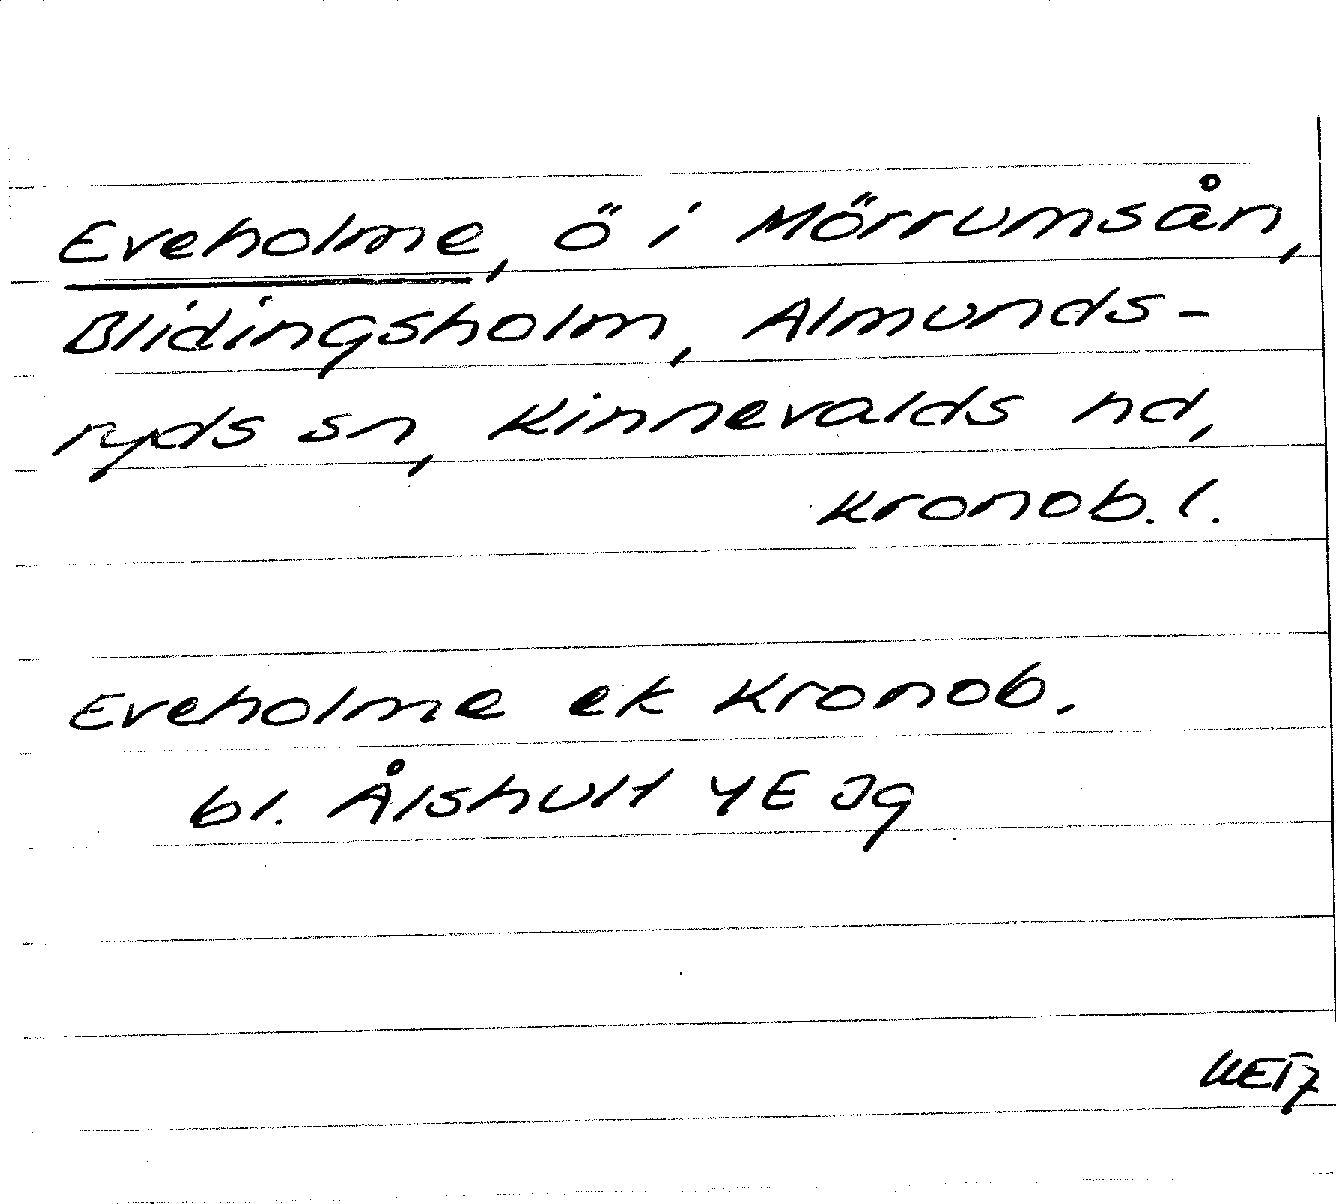 Eveholme, ö i Mörrumsån,
Blidingsholm, Almunds-
ryds sn, Kinnevalds hd,
Kronob. l.
Eveholme ek Kronob.
bl. Ålshult 4E Jg